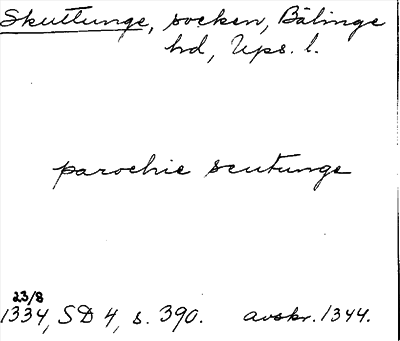 Skuttunge, socken, Bälinge
hd, Ups. l.
parochie scutunge
23/8
1334, SD 4, s. 390. avskr. 1344.